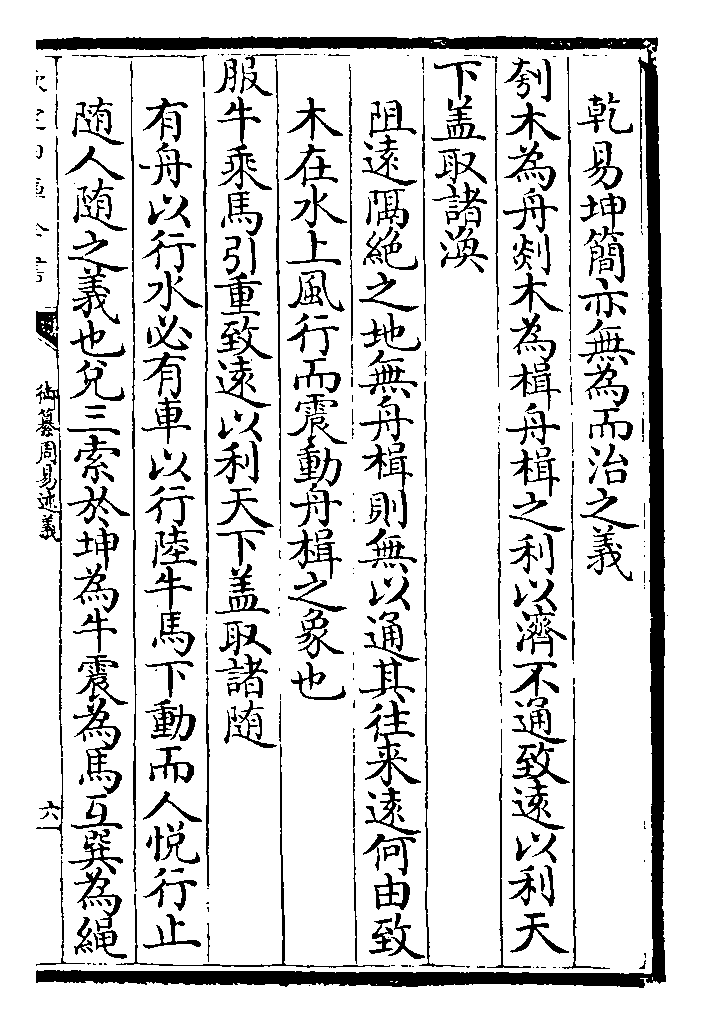 乾易坤簡亦無為而治之義
刳木為舟剡木為楫舟楫之利以濟不通致遠以利天
下盖取諸渙
阻遠隔絶之地無舟楫則無以通其徃来遠何由致
木在水上風行而震動舟楫之象也
服牛乘馬引重致遠以利天下盖取諸随
有舟以行水必有車以行陸牛馬下動而人悦行止
随人随之義也兌三索於坤為牛震為馬互巽為繩
御纂周易述義
六